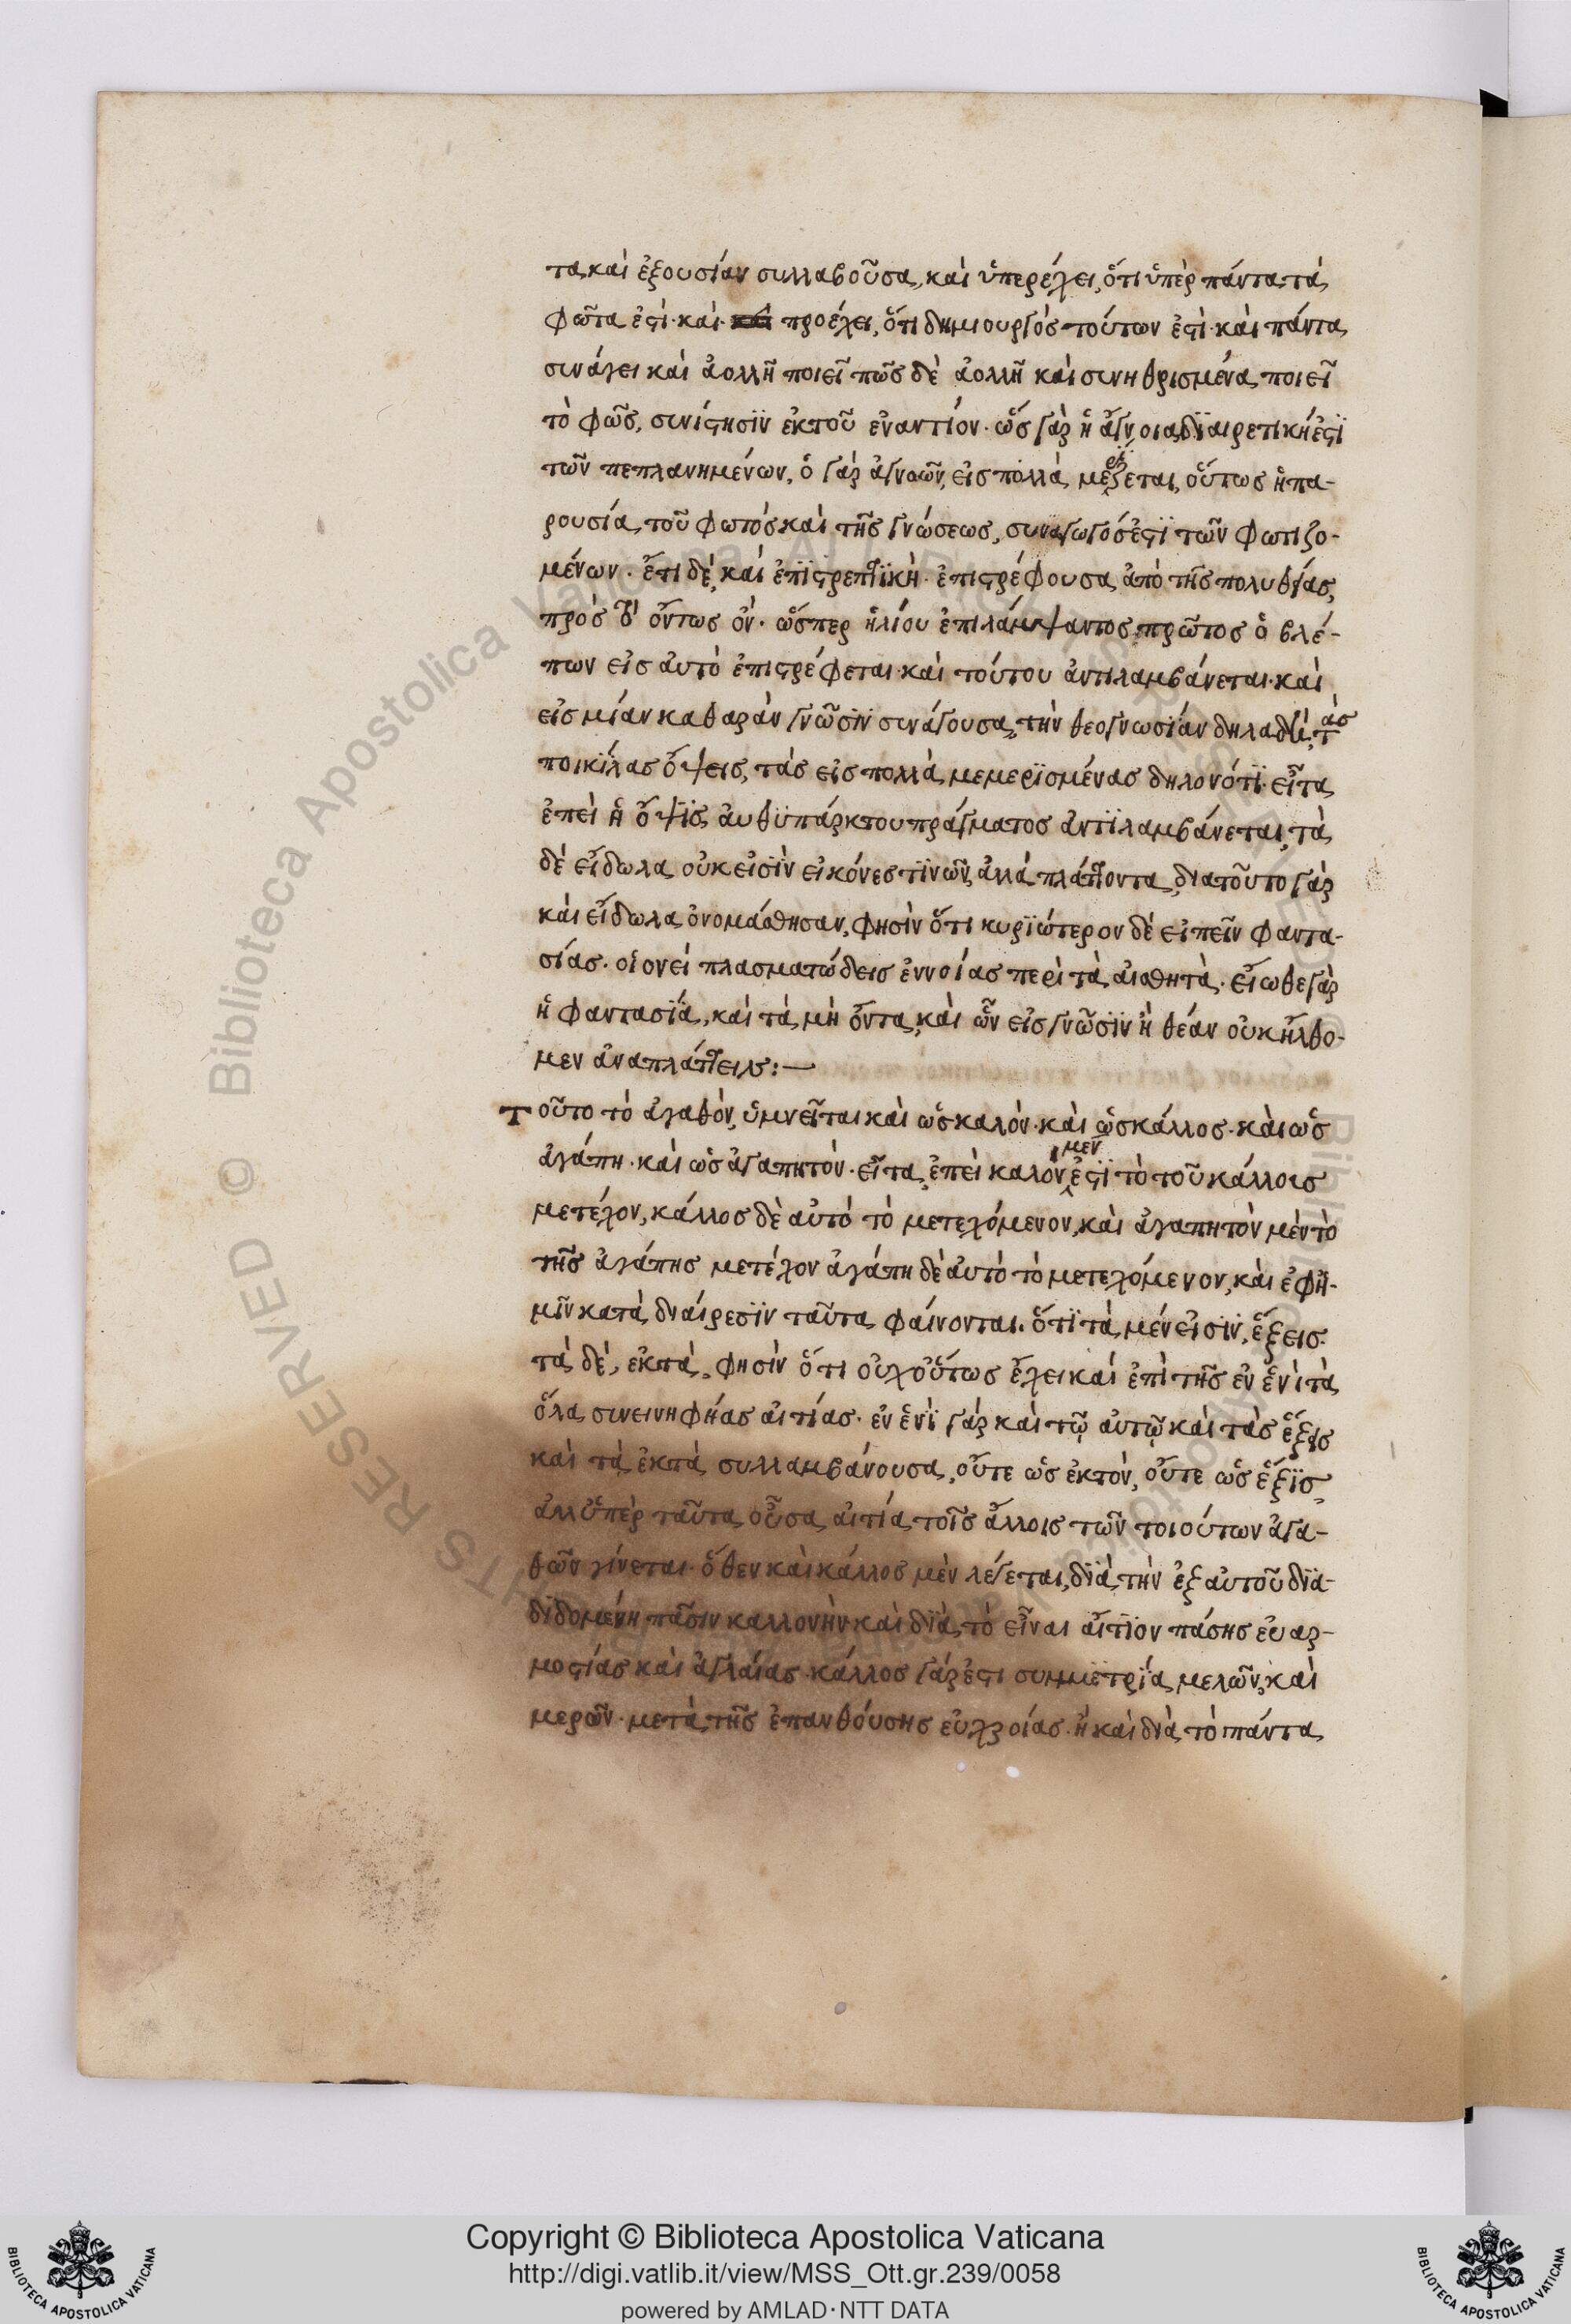 τα καὶ ἐξουσίαν συλλαβοῦσα, καὶ ὑπερέχει, ὅτι ὑπὲρ πάντα τὰ
φῶτα ἐστὶ· καὶ προέχει, ὅτι δημιουργὸς τούτων ἐστὶ· καὶ πάντα
συνάγει καὶ ἀολλῆ ποιεῖ πῶς δὲ ἀολλῆ καὶ συνηθρισμένα ποιεῖ
τὸ φῶς, συνίστησϊν ἐκτοῦ ἐναντίον· ὡς γὰρ ἡ ἄγνοια δϊαιρετικὴ ἐστϊ
τῶν πεπλανημένων, ὁ γὰρ ἀγνοῶν, εἰς πολλὰ μερίζεται, οὕτως ἡ πα-
ρουσία τοῦ φωτὸς καὶ τῆς γνώσεως, συναγωγός ἐστϊ τῶν φωτιζο-
μένων· ἔτι δὲ, καὶ ἐπϊστρεπτϊκὴ· ἐπιστρέφουσα ἀπὸ τῆς πολυθεΐας,
πρὸς τὸ ὄντως ὄν· ὥσπερ ἡλίου ἐπιλάμψαντος πρῶτος ὁ βλέ-
πων εἰς ἀυτὸ ἐπιστρέφεται· καὶ τούτου ἀντιλαμβάνεται· καὶ
εἰς μίαν καθαρὰν γνῶσϊν συνάγουσα, τὴν θεογνωσϊαν δηλαδὴ, τὰς
ποικίλας ὄψεις, τὰς εἰς πολλὰ μεμερϊσμένας δηλονότϊ· εἶτα
ἐπεὶ ἡ ὄψϊς ἀυθϋπάρκτου πράγματος ἀντϊλαμβάνεται, τὰ
δὲ εἴδωλα οὐκ εἰσϊν εἰκόνες τϊνῶν, ἀλλὰ πλάττονται, διατοῦτο γὰρ
καὶ εἴδωλα ὀνομάσθησαν, φησὶν ὅτι κυρϊώτερον δὲ εἰπεῖν φαντα-
σίας· οἱονεὶ πλασματώδεις ἐννοίας περὶ τὰ αἰσθητὰ· εἴωθε γὰρ
ἡ φαντασϊα, καὶ τὰ μὴ ὄντα, καὶ ὧν εἰς γνῶσϊν ἢ θέαν οὐκ ἤλθο-
μεν ἀναπλάττειν:—
Τοῦτο τὸ ἀγαθὸν, ὑμνεῖται καὶ ὡς καλὸν· καὶ ὡς κάλλος· καὶ ὡς
ἀγάπη· καὶ ὡς ἀγαπητὸν· εἶτα, ἐπεὶ καλὸν μέν ἐστϊ τὸ τοῦ κάλλοις
μετέχον, κάλλος δὲ αὐτὸ τὸ μετεχόμενον, καὶ ἀγαπητὸν μὲν τὸ
τῆς ἀγάπης μετέχον ἀγάπη δὲ ἀυτὸ τὸ μετεχόμενον, καὶ ἐφ' ἡ-
μῖν κατὰ διαίρεσϊν ταῦτα φαίνονται. ὅτϊ τὰ μέν εἰσϊν, ἕξεις·
τὰ δὲ, ἑκτὰ, φησὶν ὅτι οὐχ οὕτως ἔχει καὶ ἐπὶ τῆς ἐν ἑνὶ τὰ
ὅλα συνειληφυίας αἰτίας· ἐν ἑνϊ γὰρ καὶ τῷ ἀυτῷ καὶ τὰς ἕξεις
καὶ τὰ ἑκτὰ συλλαμβάνουσα, οὔτε ὡς ἑκτὸν, οὔτε ὡς ἕξϊς,
ἀλλ' ὑπὲρ ταῦτα οὖσα αἰτία τοῖς ἄλλοις τῶν τοιούτων ἀγα-
θῶν γίνεται· ὅθεν καὶ κάλλος μὲν λέγεται, δϊὰ τὴν ἐξ αὐτοῦ δϊα-
δϊδομένη πᾶσιν καλλονὴν· καὶ δϊὰ τὸ εἶναι αἴτϊον πάσης εὐαρ-
μοστίας καὶ ἀγλαΐας· κάλλος γάρ ἐστι συμμϊετρία μελῶν, καὶ
μερῶν· μετὰ τῆς ἐπανθούσης εὐχροίας· ἢ καὶ διὰ τὸ πάντα
Copyright © Biblioteca Apostolica Vaticana
http://digi.vatlib.it/view/MSS_Ott.gr.239/0058
powered by AMLAD·NTT DATA